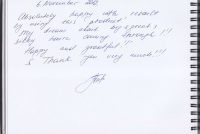 6 November 2012
Absolutely happy with result
by using this product!
My dream about
silky hair coming through!!!
Happy and grateful!!
& Thank you very much!!!